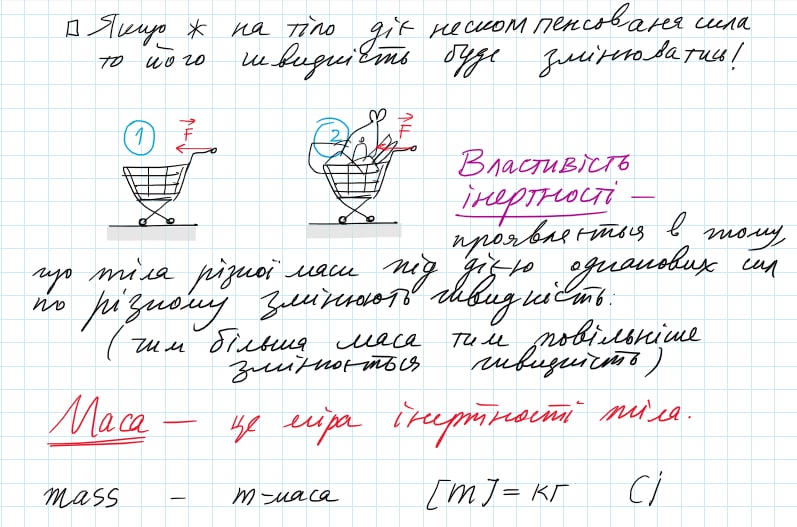 Якщо * на тіло діє нескомпенсованя сила
то його швидкість буде змінюватись!
1 F 2 F
Властивість
інертності —
проявляється в тому,
що тіла різної маси під дією однакових сил
по різному змінюють швидкість.
(чим більша маса тим повільніше
змінюється швидкість)
Маса — це міра інертності тіла.
mass – m–маса [m] = кг Сі